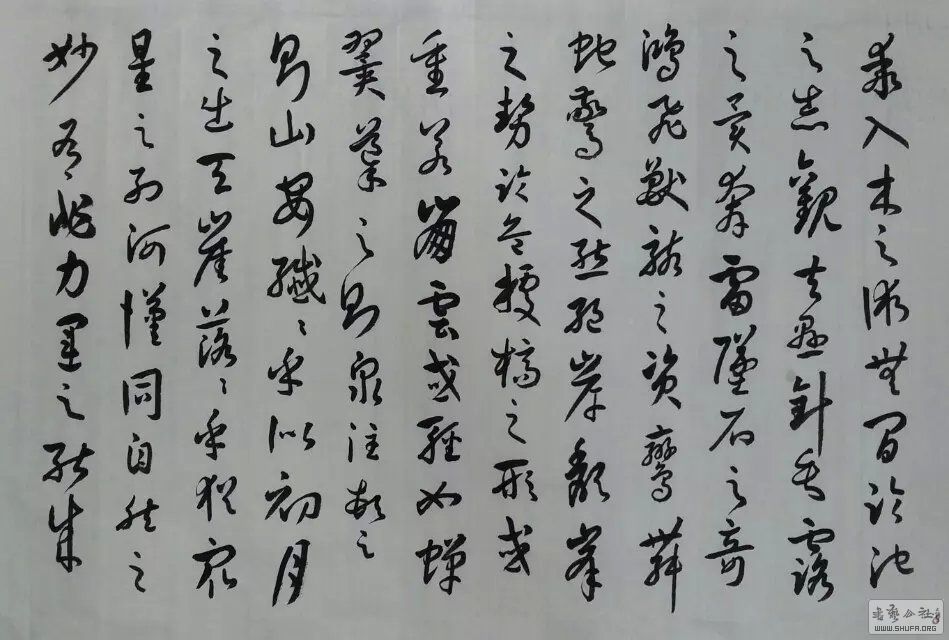 乖入木之術無間臨池
之志觀夫懸針垂露
之異奔雷墜石之奇
鴻飛獸駭之資鸞舞
蛇驚之態絕岸頹峯
之勢臨危據槁之形或
重若崩雲或輕如蟬
翼導之則泉注頓之
則山安纖〻乎似初月
之出天崖落〻乎猶眾
星之列河漢同自然之
妙有非力運之能成
書藝公社
WWW.SHUFA.ORG